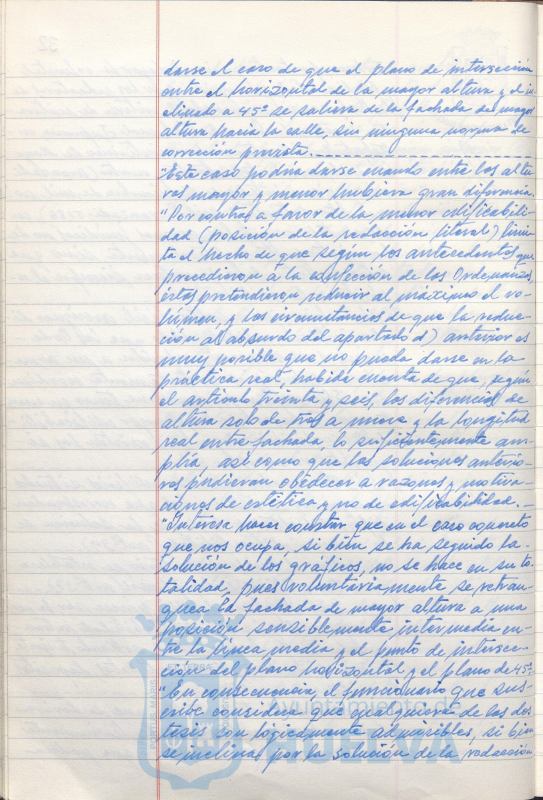 darse el caso de que el plano de intersección
entre el horizontal de la mayor altura y el in-
clinado a 45º se saliera de la fachada de mayor
altura hacia la calle, sin ninguna norma de
corrección prevista.
"Este caso podría darse cuando entre las altu-
ras mayor y menor hubiera gran diferencia.
"Por contra, a favor de la menor edificabili-
dad (posición de la redacción literal) limi-
ta el hecho de que según los antecedentes que
precedieron a la confección de las Ordenanzas
éstas pretendieron reducir al máximo el vo-
lúmen, y las circunstancias de que la reduc-
ción al absurdo del apartado d) anterior es
muy posible que no pueda darse en la
práctica real, habida cuenta de que, según
el artículo treinta y seis, las diferencias de
altura solo de tres a nueve y la longitud
real entre fachada, lo suficientemente am-
plia, así como que las soluciones anterio-
res pudieran obedecer a razones y motiva-
ciones de estética y no de edificabilidad.-
"Interesa hacer constar que en el caso concreto
que nos ocupa, si bién se ha seguido la
solución de los gráficos, no se hace en su to-
talidad, pues voluntáriamente se retran-
quea la fachada de mayor altura a una
posición sensiblemente intermedia en-
tre la línea media y el punto de intersec-
ción del plano horizontal y el plano de 45º
"En consecuencia, el funcionario que sus-
cribe considera que cualquiera de las dos
tesis son lógicamente admisibles, si bien
se inclina por la solución de la redacción
Ayuntamiento de
HUELVA